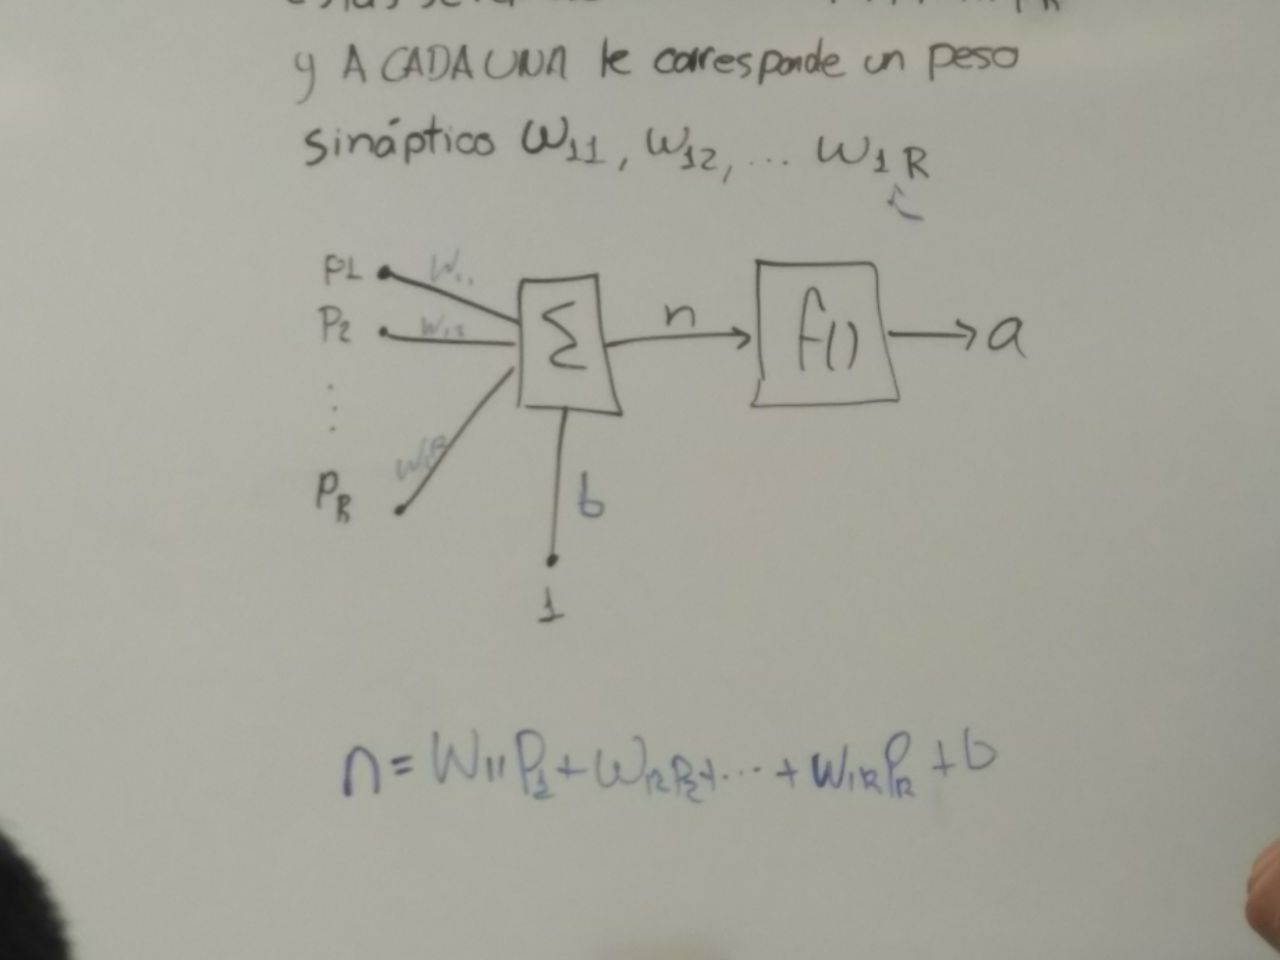 y A CADA UNA le corresponde un peso
sináptico W11, W12, ... W1R
P1 W11
P2 W12
⋮
PR W1R
Σ n f() a
b
1
n = W11P1 + W12P2 + ... + W1RPR + b